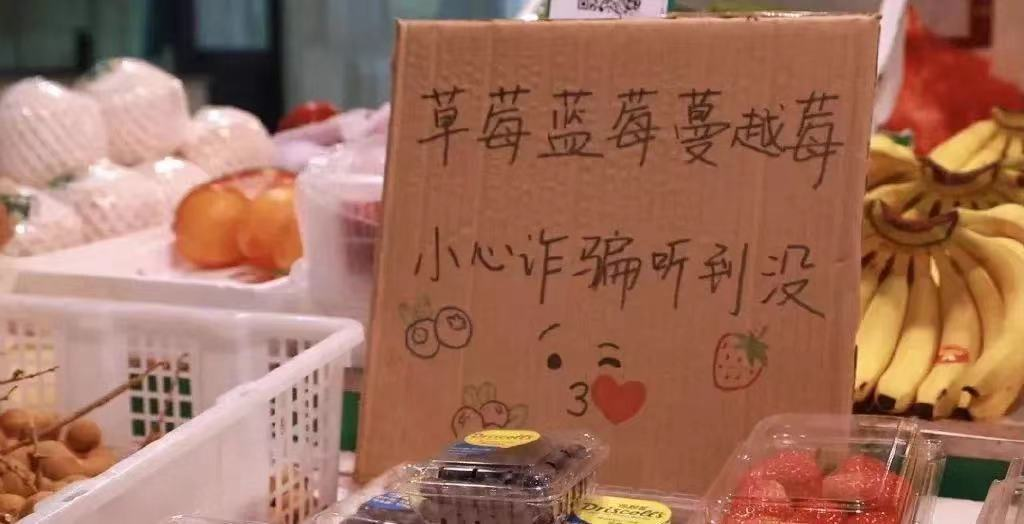 草莓蓝莓蔓越莓
小心诈骗听到没
Driscoll's
Driscoll's